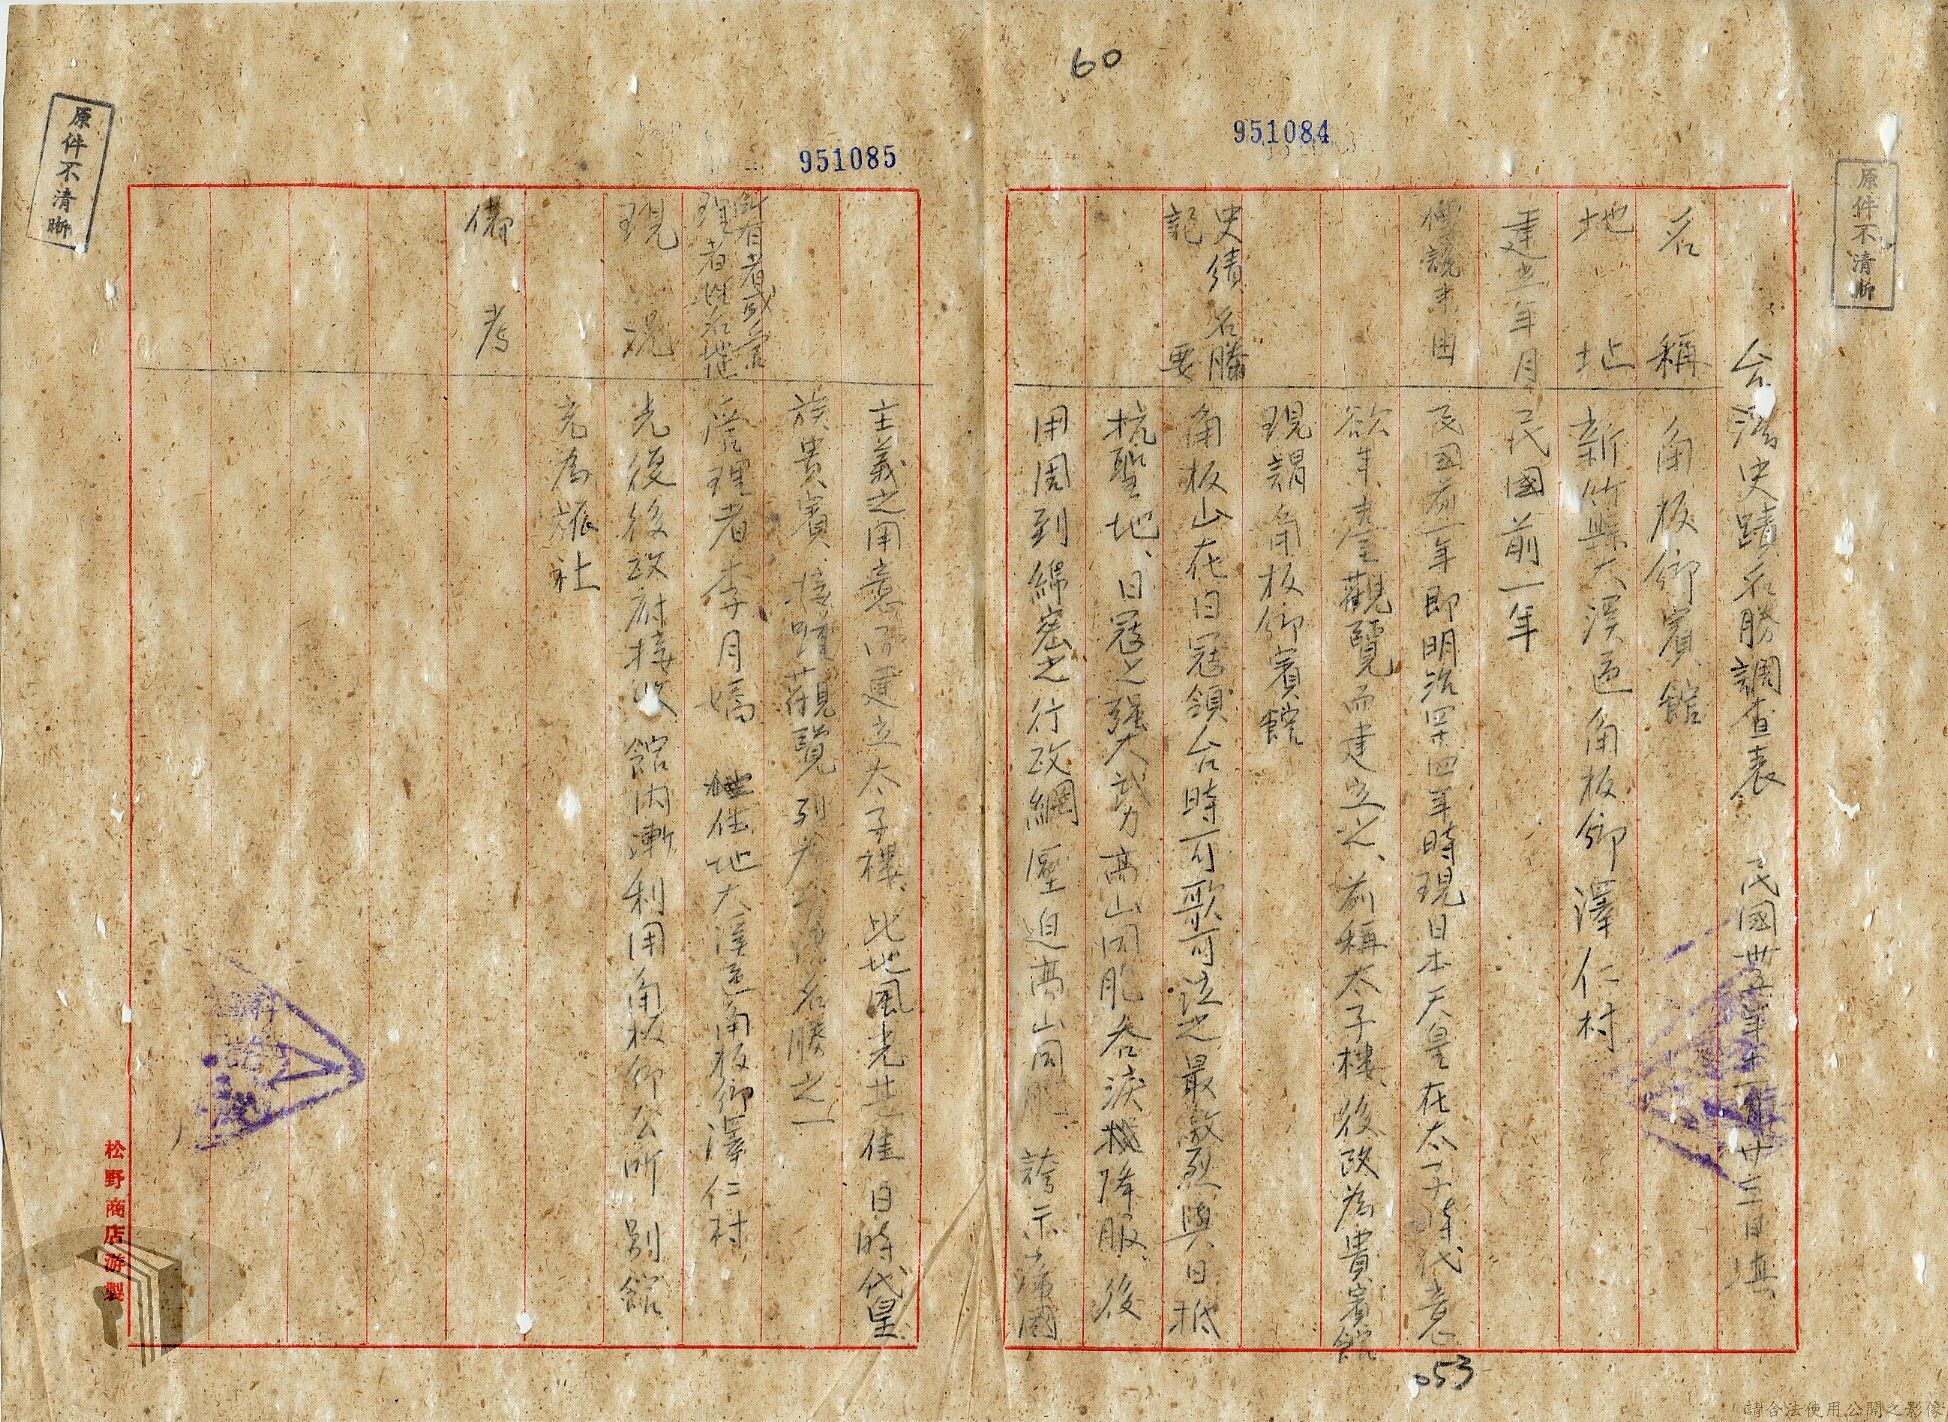 60
951084
951085
原件不清晰
原件不清晰
台灣史蹟名勝調查表 民國卅五年十一月廿三日填
名稱 角板鄉賓館
地址 新竹縣大溪區角板鄉澤仁村
建立年月 民國前一年
傳說來由 民國前一年即明治四十四年時現日本天皇在太子時代意
欲來臺觀覽而建立之、前稱太子樓、後改為貴賓館
現謂角板鄉賓館
史績名勝
記要
角板山在日冠領台時可歌可泣之最激烈與日抵
抗聖地、日冦之强大武力高山同胞吞淚降服、後
用周到綿密之行政網壓迫高山同胞、誇示帝國
主義之用意而建立太子樓、此地風光甚佳日時代皇
族貴賓、接踵觀覽列為台灣名勝之一
所有者或管
理者姓名地
管理者李月嬌 住地大溪區角板鄉澤仁村
現況 光復後政府接收館內漸利用角板鄉公所別館
充為旅社
備考
松野商店游製
053
請合法使用公開之影像